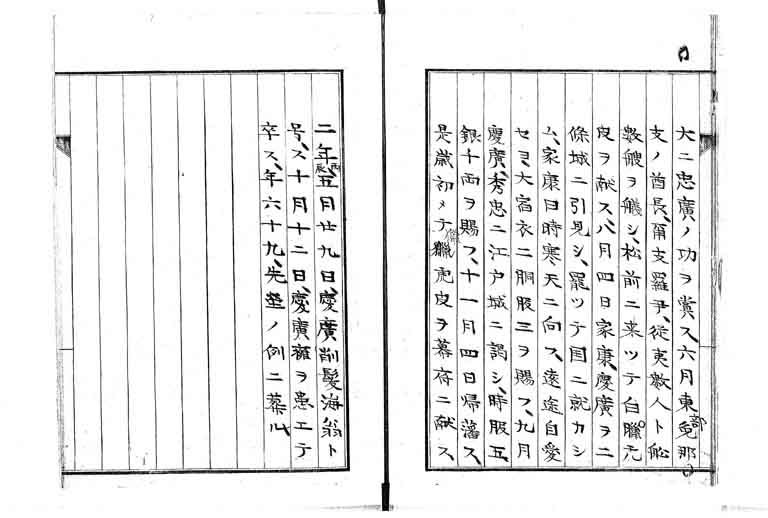 大ニ忠廣ノ功ヲ賞ス、六月東部免那
支ノ酋長、爾支羅尹、従夷数人ト舩
数艘ヲ艤シ、松前ニ来ツテ白臘虎
皮ヲ献ス、八月四日家康、慶廣ヲ二
條城ニ引見シ、罷ツテ国ニ就カシ
ム、家康曰時寒天ニ向ス、遠途自愛
セヨ、大宿衣二胴服三ヲ賜フ、九月
慶廣、秀忠ニ江戸城ニ謁シ、時服五、
銀十両ヲ賜フ、十一月四日帰藩ス、
是歳初メテ獵虎皮ヲ幕府ニ献ス、
二年丙辰、五月廿九日、慶廣削髪海翁ト
号ス、十月十二日、慶廣癰ヲ患エテ
卒ス、年六十九、先塋ノ例ニ葬ル